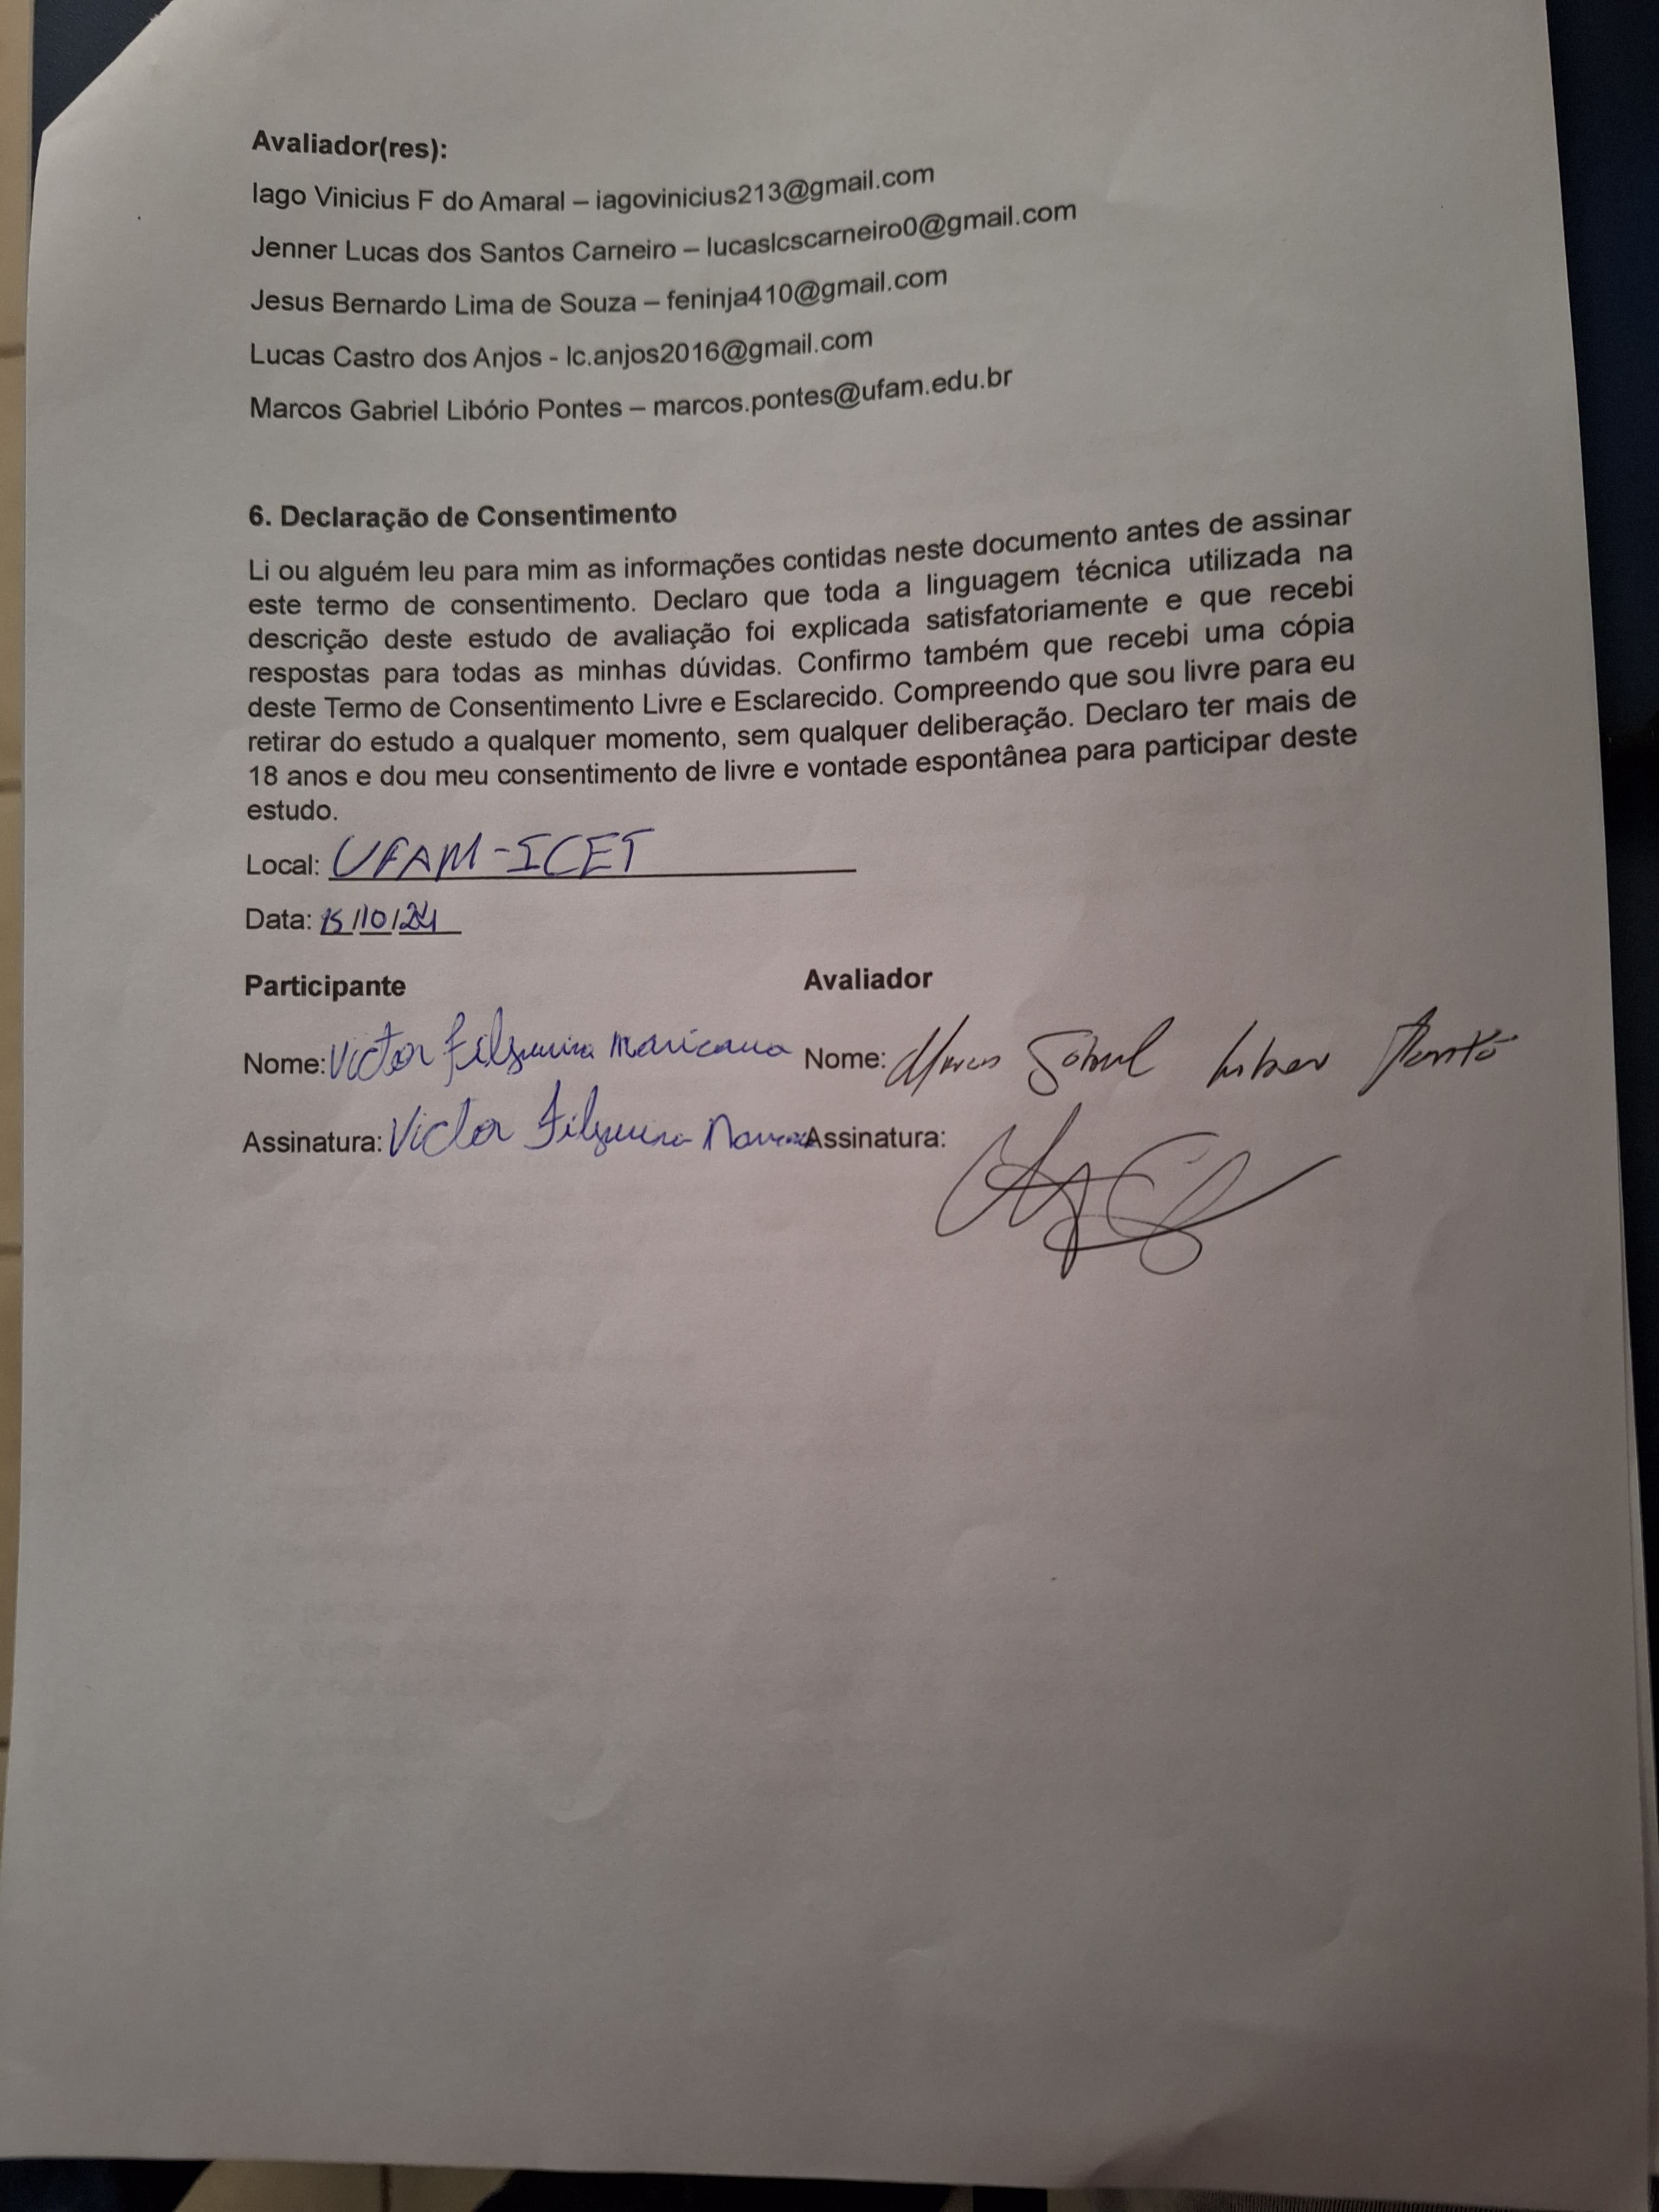 Avaliador(res):
Iago Vinicius F do Amaral – iagovinicius213@gmail.com
Jenner Lucas dos Santos Carneiro – lucaslcscarneiro0@gmail.com
Jesus Bernardo Lima de Souza – feninja410@gmail.com
Lucas Castro dos Anjos - lc.anjos2016@gmail.com
Marcos Gabriel Libório Pontes – marcos.pontes@ufam.edu.br
6. Declaração de Consentimento
Li ou alguém leu para mim as informações contidas neste documento antes de assinar
este termo de consentimento. Declaro que toda a linguagem técnica utilizada na
descrição deste estudo de avaliação foi explicada satisfatoriamente e que recebi
respostas para todas as minhas dúvidas. Confirmo também que recebi uma cópia
deste Termo de Consentimento Livre e Esclarecido. Compreendo que sou livre para eu
retirar do estudo a qualquer momento, sem qualquer deliberação. Declaro ter mais de
18 anos e dou meu consentimento de livre e vontade espontânea para participar deste
estudo.
Local: UFAM-ICET
Data: 15/10/24
Participante Avaliador
Nome: Victor Filgueira Nome: Marcos Gabriel Pontes
Assinatura: Victor Filgueira Assinatura: